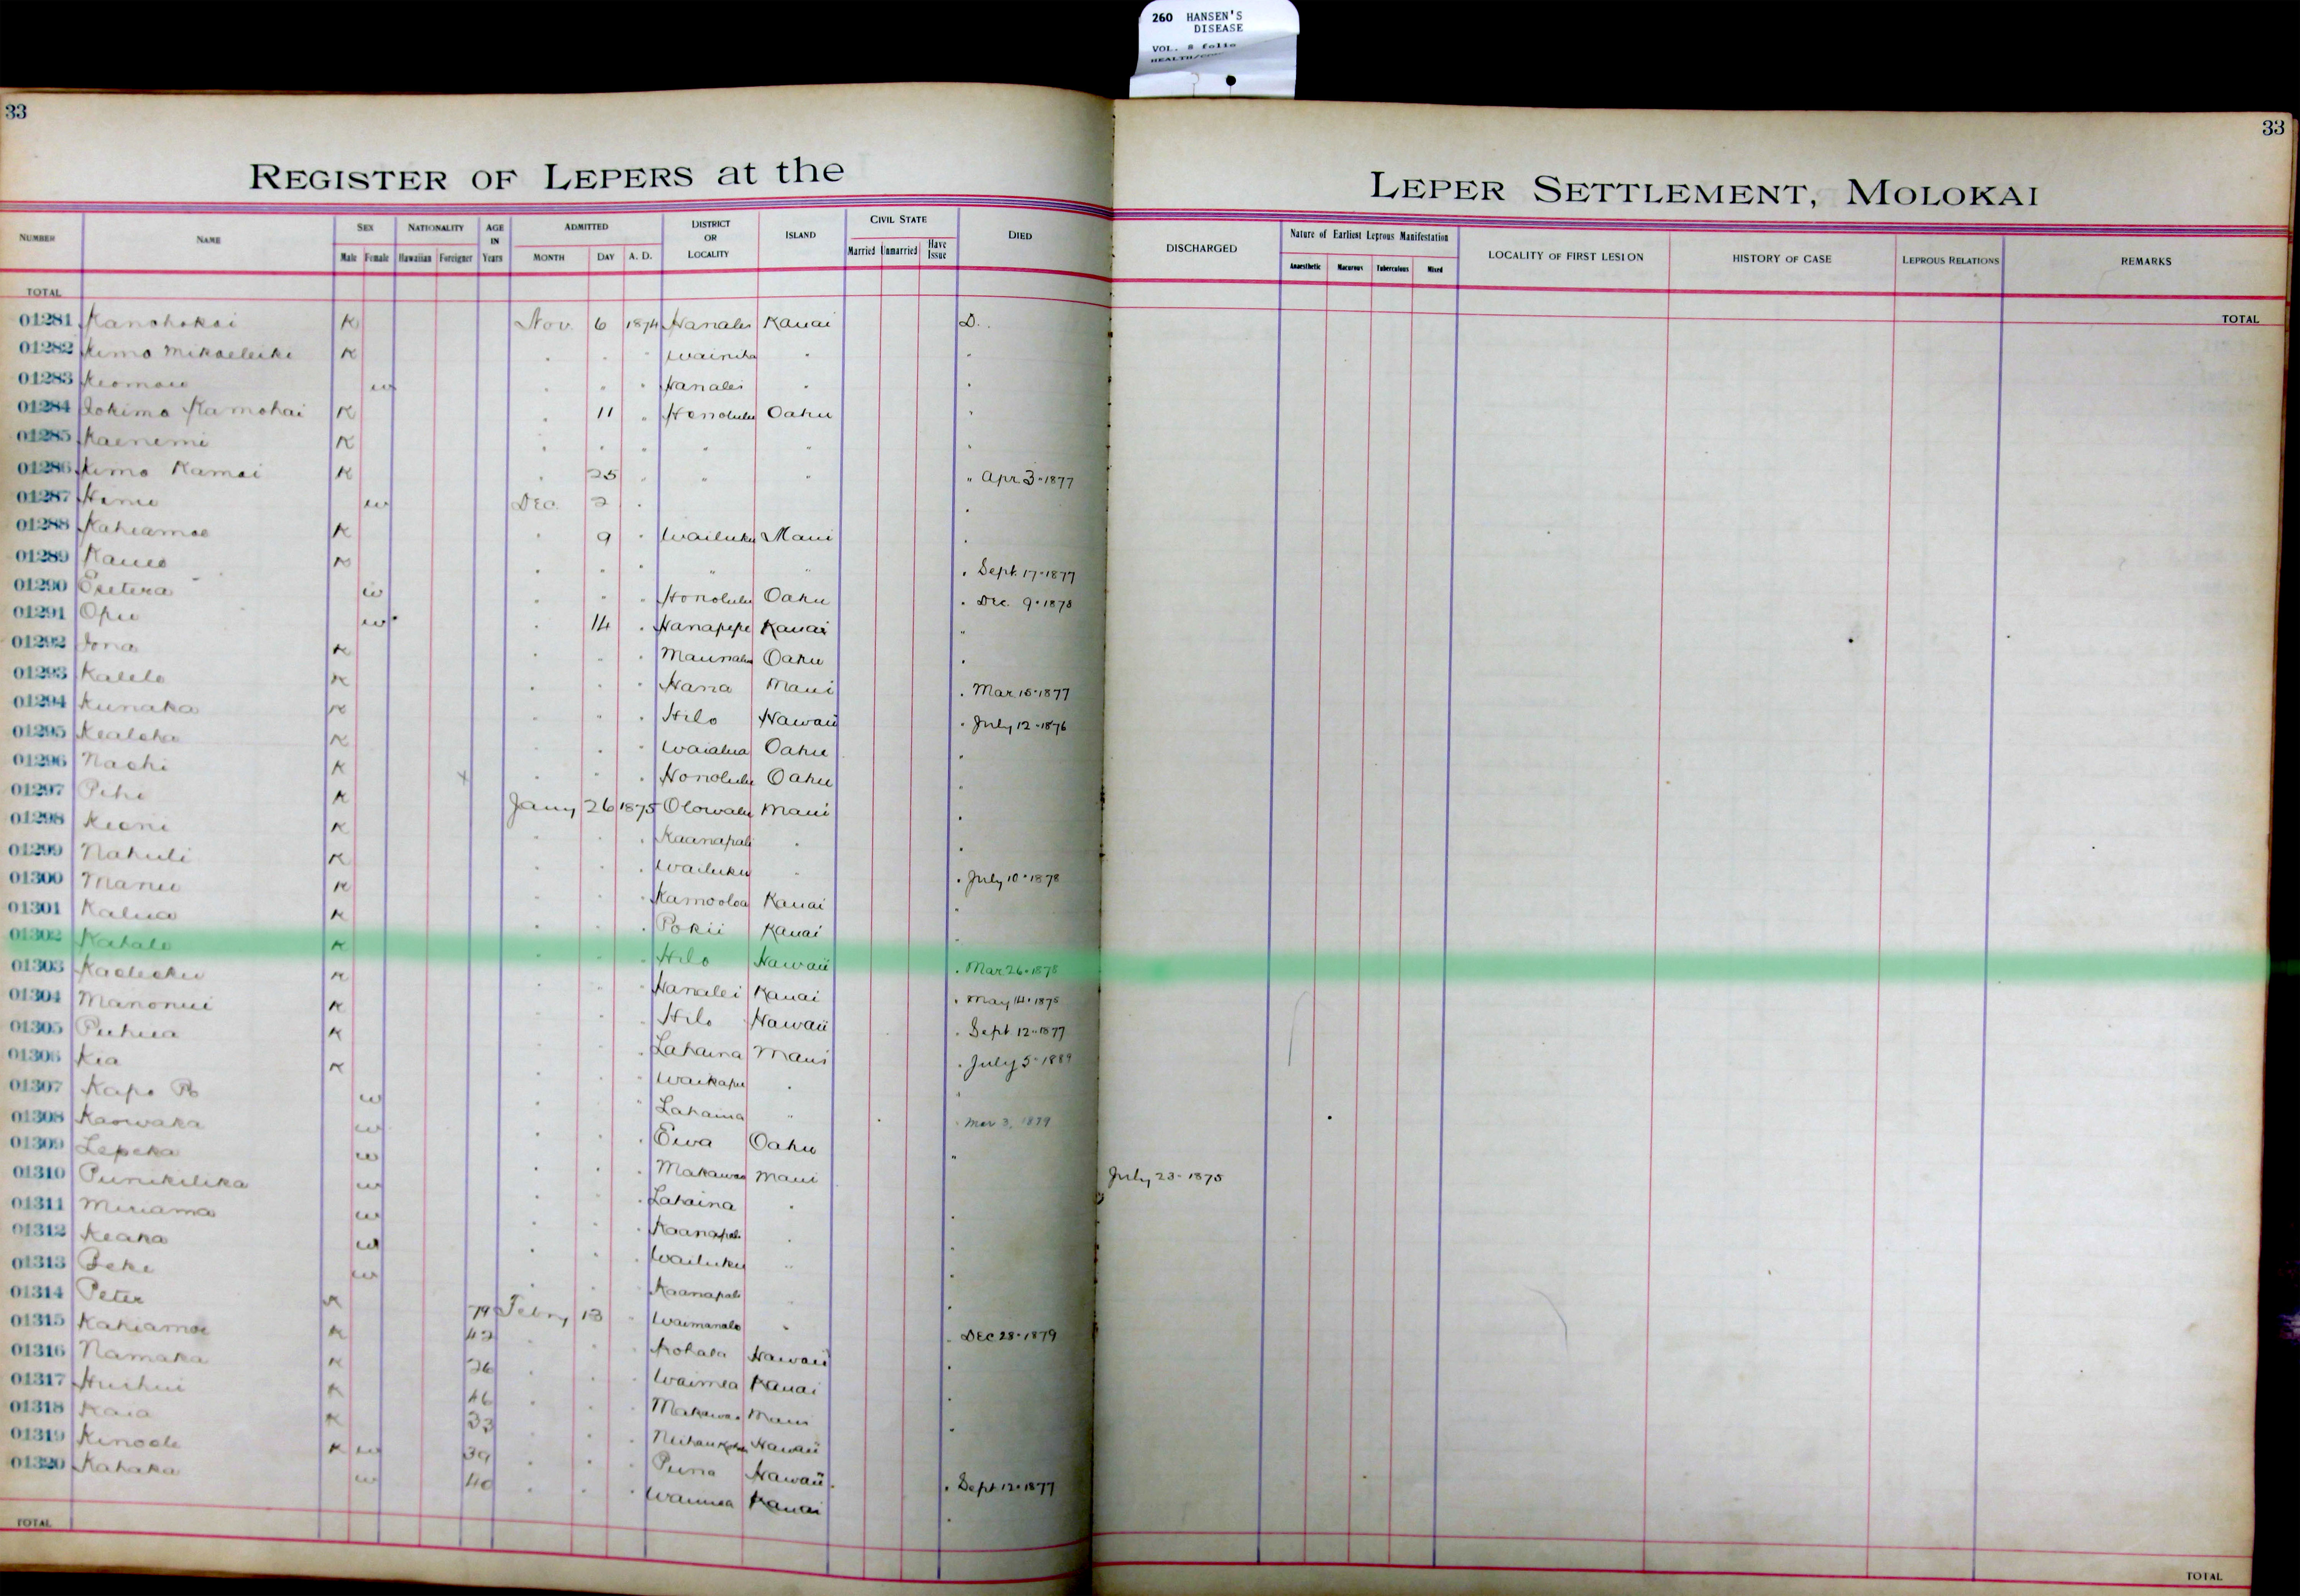 260 HANSEN'S
DISEASE
VOL. 8 folio
33
33
REGISTER OF LEPERS at the LEPER SETTLEMENT, MOLOKAI
NUMBER NAME SEX NATIONALITY AGE IN Years ADMITTED DISTRICT OR LOCALITY ISLAND CIVIL STATE DIED DISCHARGED Nature of Earliest Leprous Manifestation LOCALITY OF FIRST LESION HISTORY OF CASE LEPROUS RELATIONS REMARKS
Male Female Hawaiian Foreigner MONTH DAY A. D. Married Unmarried Have Issue Anaesthetic Macurous Tuberculous Mixed
TOTAL TOTAL
01281 Kanohokai K Nov. 6 1874 Hanalei Kauai D.
01282 Kimo Mikaeleiki K " " " Wainiha " "
01283 w " " " Hanalei " "
01284 Iokimo Kamohai K " 11 " Honolulu Oahu "
01285 Kaenemi K " " " " " "
01286 Kimo Kamai K " 25 " " " " Apr 3-1877
01287 w Dec. 2 " "
01288 Kahiamoe K " 9 " Wailuku Maui "
01289 K " " " " " " Sept. 17-1877
01290 w " " " Honolulu Oahu " Dec. 9-1878
01291 Opu w " 14 " Hanapepe Kauai "
01292 Iona K " " " Oahu "
01293 Kalelo K " " " Hana Maui " Mar 15-1877
01294 Kunaka K " " " Hilo Hawaii " July 12-1876
01295 Kealoha K " " " Waialua Oahu "
01296 Naohi K x " " " Honolulu Oahu "
01297 Pihi K Jany 26 1875 Olowalu Maui "
01298 Kioni K " " " Kaanapali " "
01299 Nahuli K " " " Wailuku " " July 10-1878
01300 Manu K " " " Kamooloa Kauai "
01301 Kalua K " " " Pokii Kauai "
01302 Kahale K " " " Hilo Hawaii " Mar 26-1878
01303 K " " " Hanalei Kauai " May 14-1875
01304 Manonui K " " " Hilo Hawaii " Sept 12-1877
01305 Puhua K " " " Lahaina Maui " July 5-1889
01306 Kia K " " " Waikapu " "
01307 Kapo w " " " Lahaina " " Mar 3, 1879
01308 Kaowaka w " " " Ewa Oahu "
01309 Lepeka w " " " Makawao Maui July 23-1875
01310 Punikilika w " " " Lahaina " "
01311 Miriama w " " " Kaanapali " "
01312 Keaka w " " " Wailuku " "
01313 Beke w " " " Kaanapali " "
01314 Peter K 79 Febry 13 " Waimanalo " " DEC 28-1879
01315 Kahiamoe K 42 " " " Kohala Hawaii "
01316 Namaka K 26 " " " Waimea Kauai "
01317 Huihui K 46 " " " Makawao Maui "
01318 Kaia K 33 " " " Hawaii
01319 Kinoole K w 39 " " " Puna Hawaii " Sept 12-1877
01320 Kahaka w 40 " " " Waimea Kauai "
TOTAL TOTAL